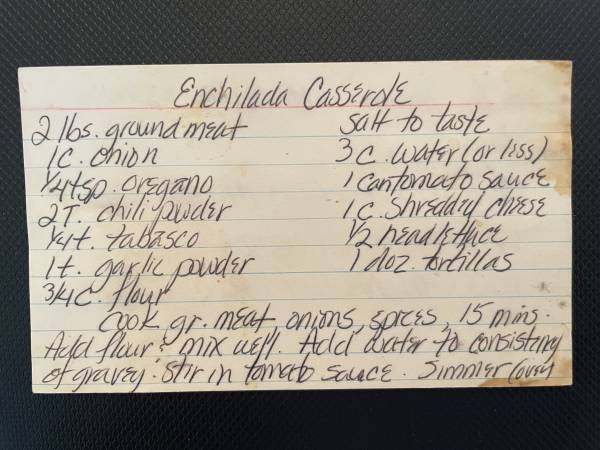 Enchilada Casserole
2 lbs. ground meat
1 c. onion
1/4 tsp. oregano
2 T. chili powder
1/4 t. tabasco
1 t. garlic powder
3/4 c. flour
salt to taste
3 c. water (or less)
1 can tomato sauce
1 c. shredded cheese
1/2 head lettuce
1 doz. tortillas
Cook gr. meat, onions, spices, 15 mins.
Add flour & mix well. Add water to consistency
of gravey. Stir in tomato sauce. Simmer (over)